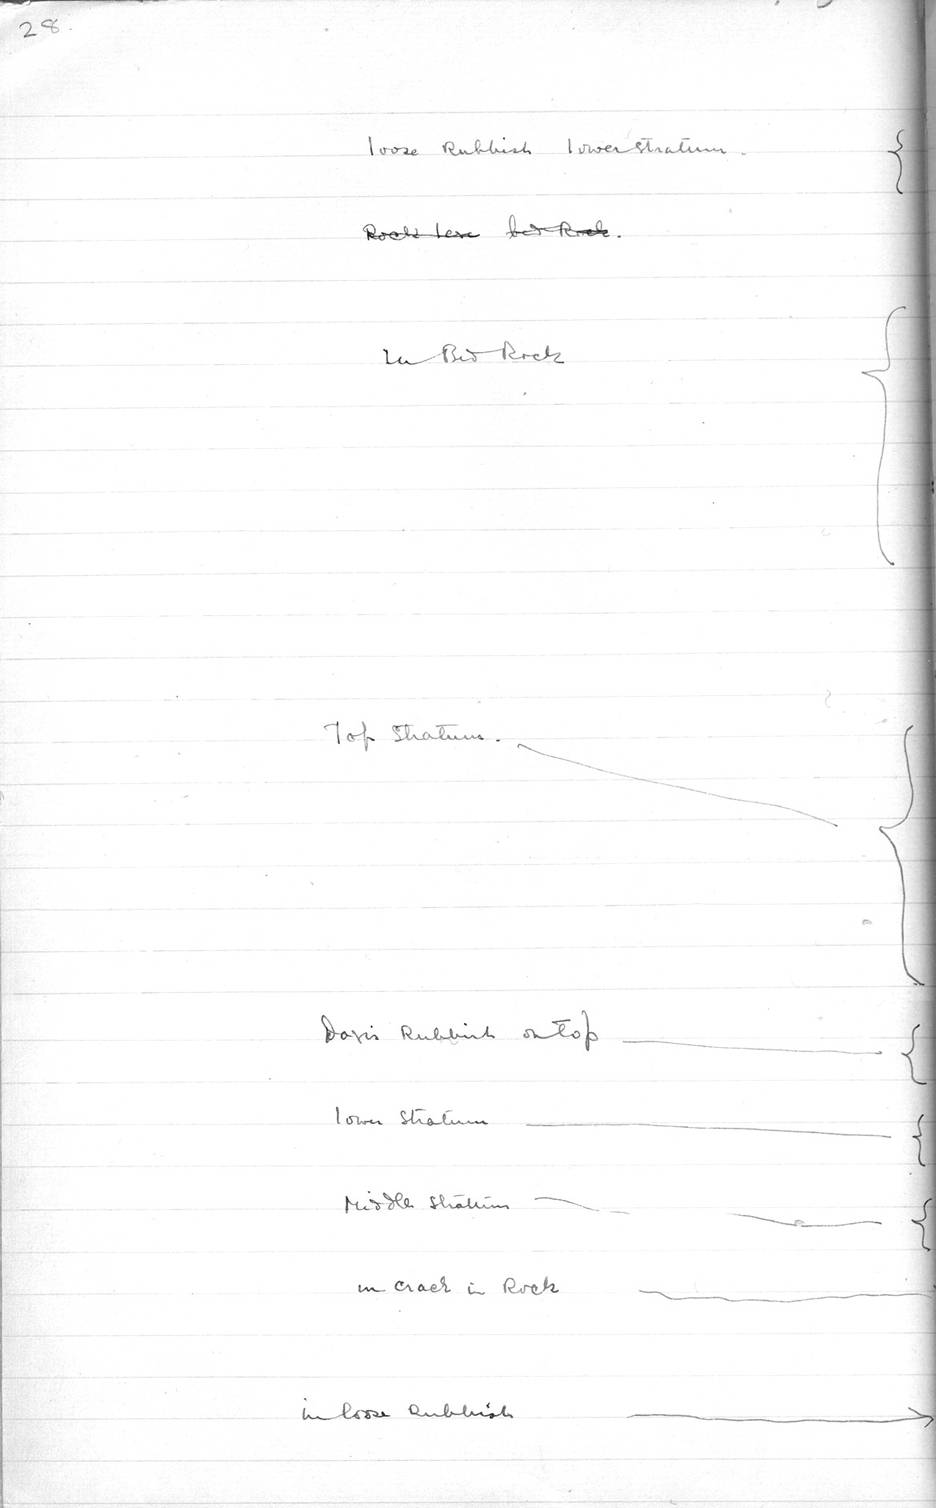 28.
loose Rubbish lower stratum.
Rock bed Rock.
In Bed Rock
Top Stratum.
Davis Rubbish on top
lower Stratum
Middle Stratum
in crack in Rock
in loose Rubbish